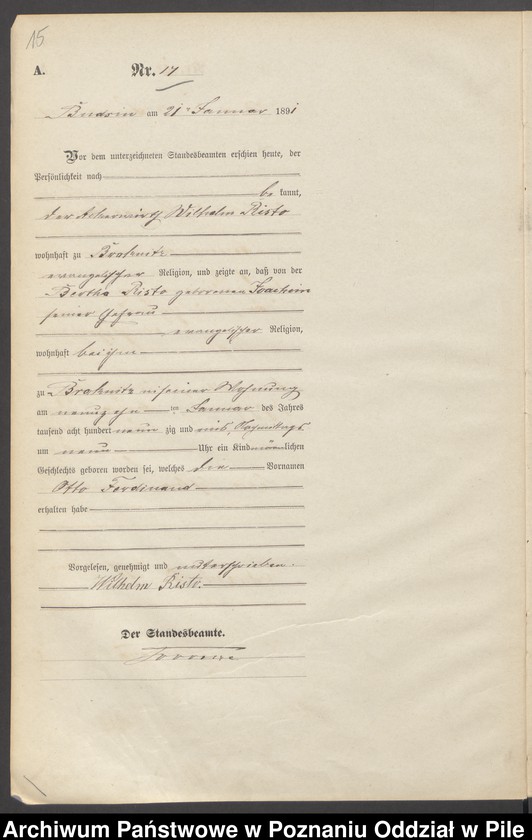 15
A.
Nr. 17
Budsin am 21ten Januar 1891
Vor dem unterzeichneten Standesbeamten erschien heute, der
Persönlichkeit nach
be kannt,
der Ackerwirth Wilhelm Risto
wohnhaft zu
evangelischer Religion, und zeigte an, daß von der
Bertha Risto geborenen Joachim
seiner Ehefrau
evangelischer Religion,
wohnhaft bei ihm
zu in seiner Wohnung
am neunzehn ten Januar des Jahres
tausend acht hundert neun zig und eins, Vormittags
um neun Uhr ein Kind männlichen
Geschlechts geboren worden sei, welches die Vornamen
Otto Ferdinand
erhalten habe
Vorgelesen, genehmigt und unterschrieben.
Wilhelm Risto.
Der Standesbeamte.
Archiwum Państwowe w Poznaniu Oddział w Pile